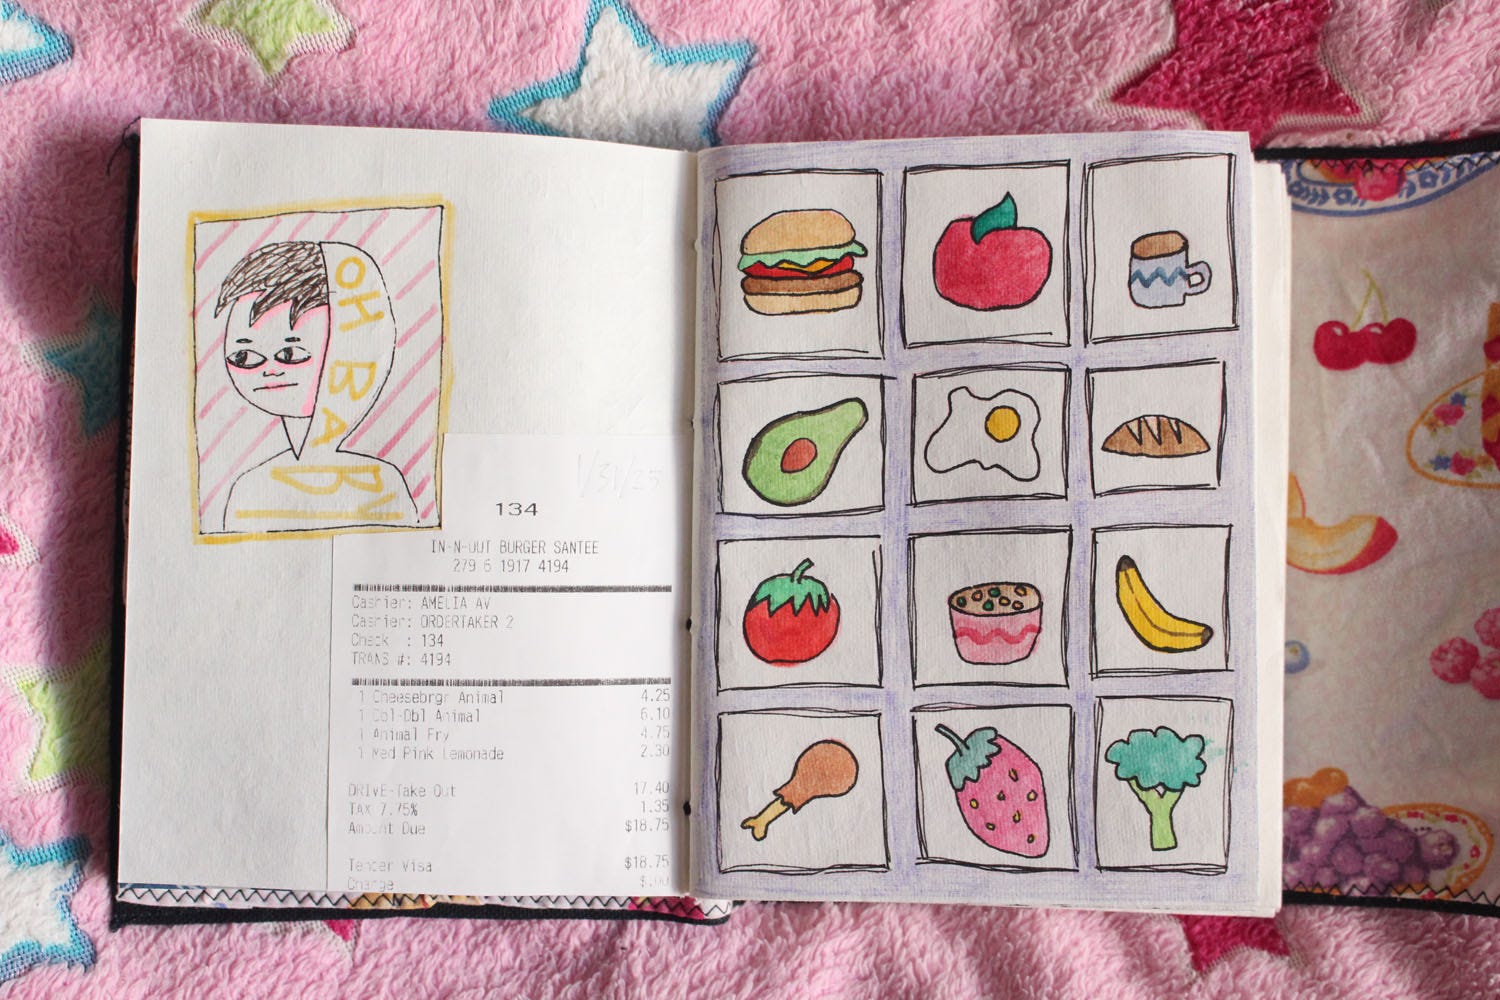 OH
BA
BY
1/31/25
134
IN-N-OUT BURGER SANTEE
279 6 1917 4194
Cashier: AMELIA AV
Cashier: ORDERTAKER 2
Check : 134
TRANS #: 4194
1 Cheesebrgr Animal 4.25
1 Dbl-Dbl Animal 6.10
1 Animal Fry 4.75
1 Med Pink Lemonade 2.30
DRIVE-Take Out 17.40
TAX 7.75% 1.35
Amount Due $18.75
Tender Visa $18.75
Change $.00